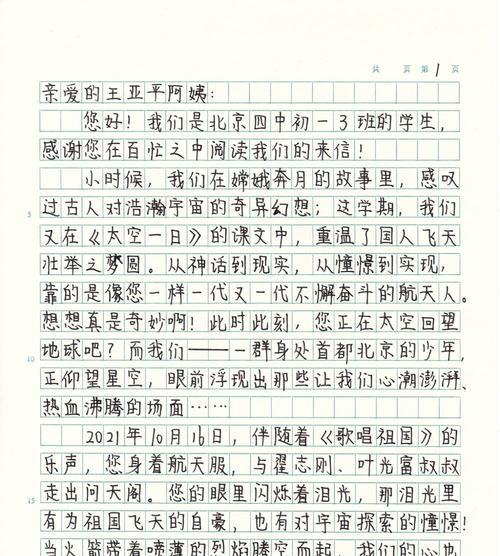 共 页 第 1 页
亲爱的王亚平阿姨:
您好!我们是北京四中初一3班的学生,
感谢您在百忙之中阅读我们的来信!
小时候,我们在嫦娥奔月的故事里,感叹
5
过古人对浩瀚宇宙的奇异幻想;这学期,我们
又在《太空一日》的课文中,重温了国人飞天
壮举之梦圆。从神话到现实,从憧憬到实现,
靠的是像您一样一代又一代不懈奋斗的航天人。
想想真是奇妙啊!此时此刻,您正在太空回望
10
地球吧?而我们——一群身处首都北京的少年,
正仰望星空,眼前浮现出那些让我们心潮澎湃、
热血沸腾的场面……
2021年10月16日,伴随着《歌唱祖国》的
乐声,您身着航天服,与翟志刚、叶光富叔叔
15
走出问天阁。您的眼里闪烁着泪光,那泪光里
有为祖国飞天的自豪,也有对宇宙探索的憧憬!
当火箭带着喷薄的烈焰腾空而起,我们的心也